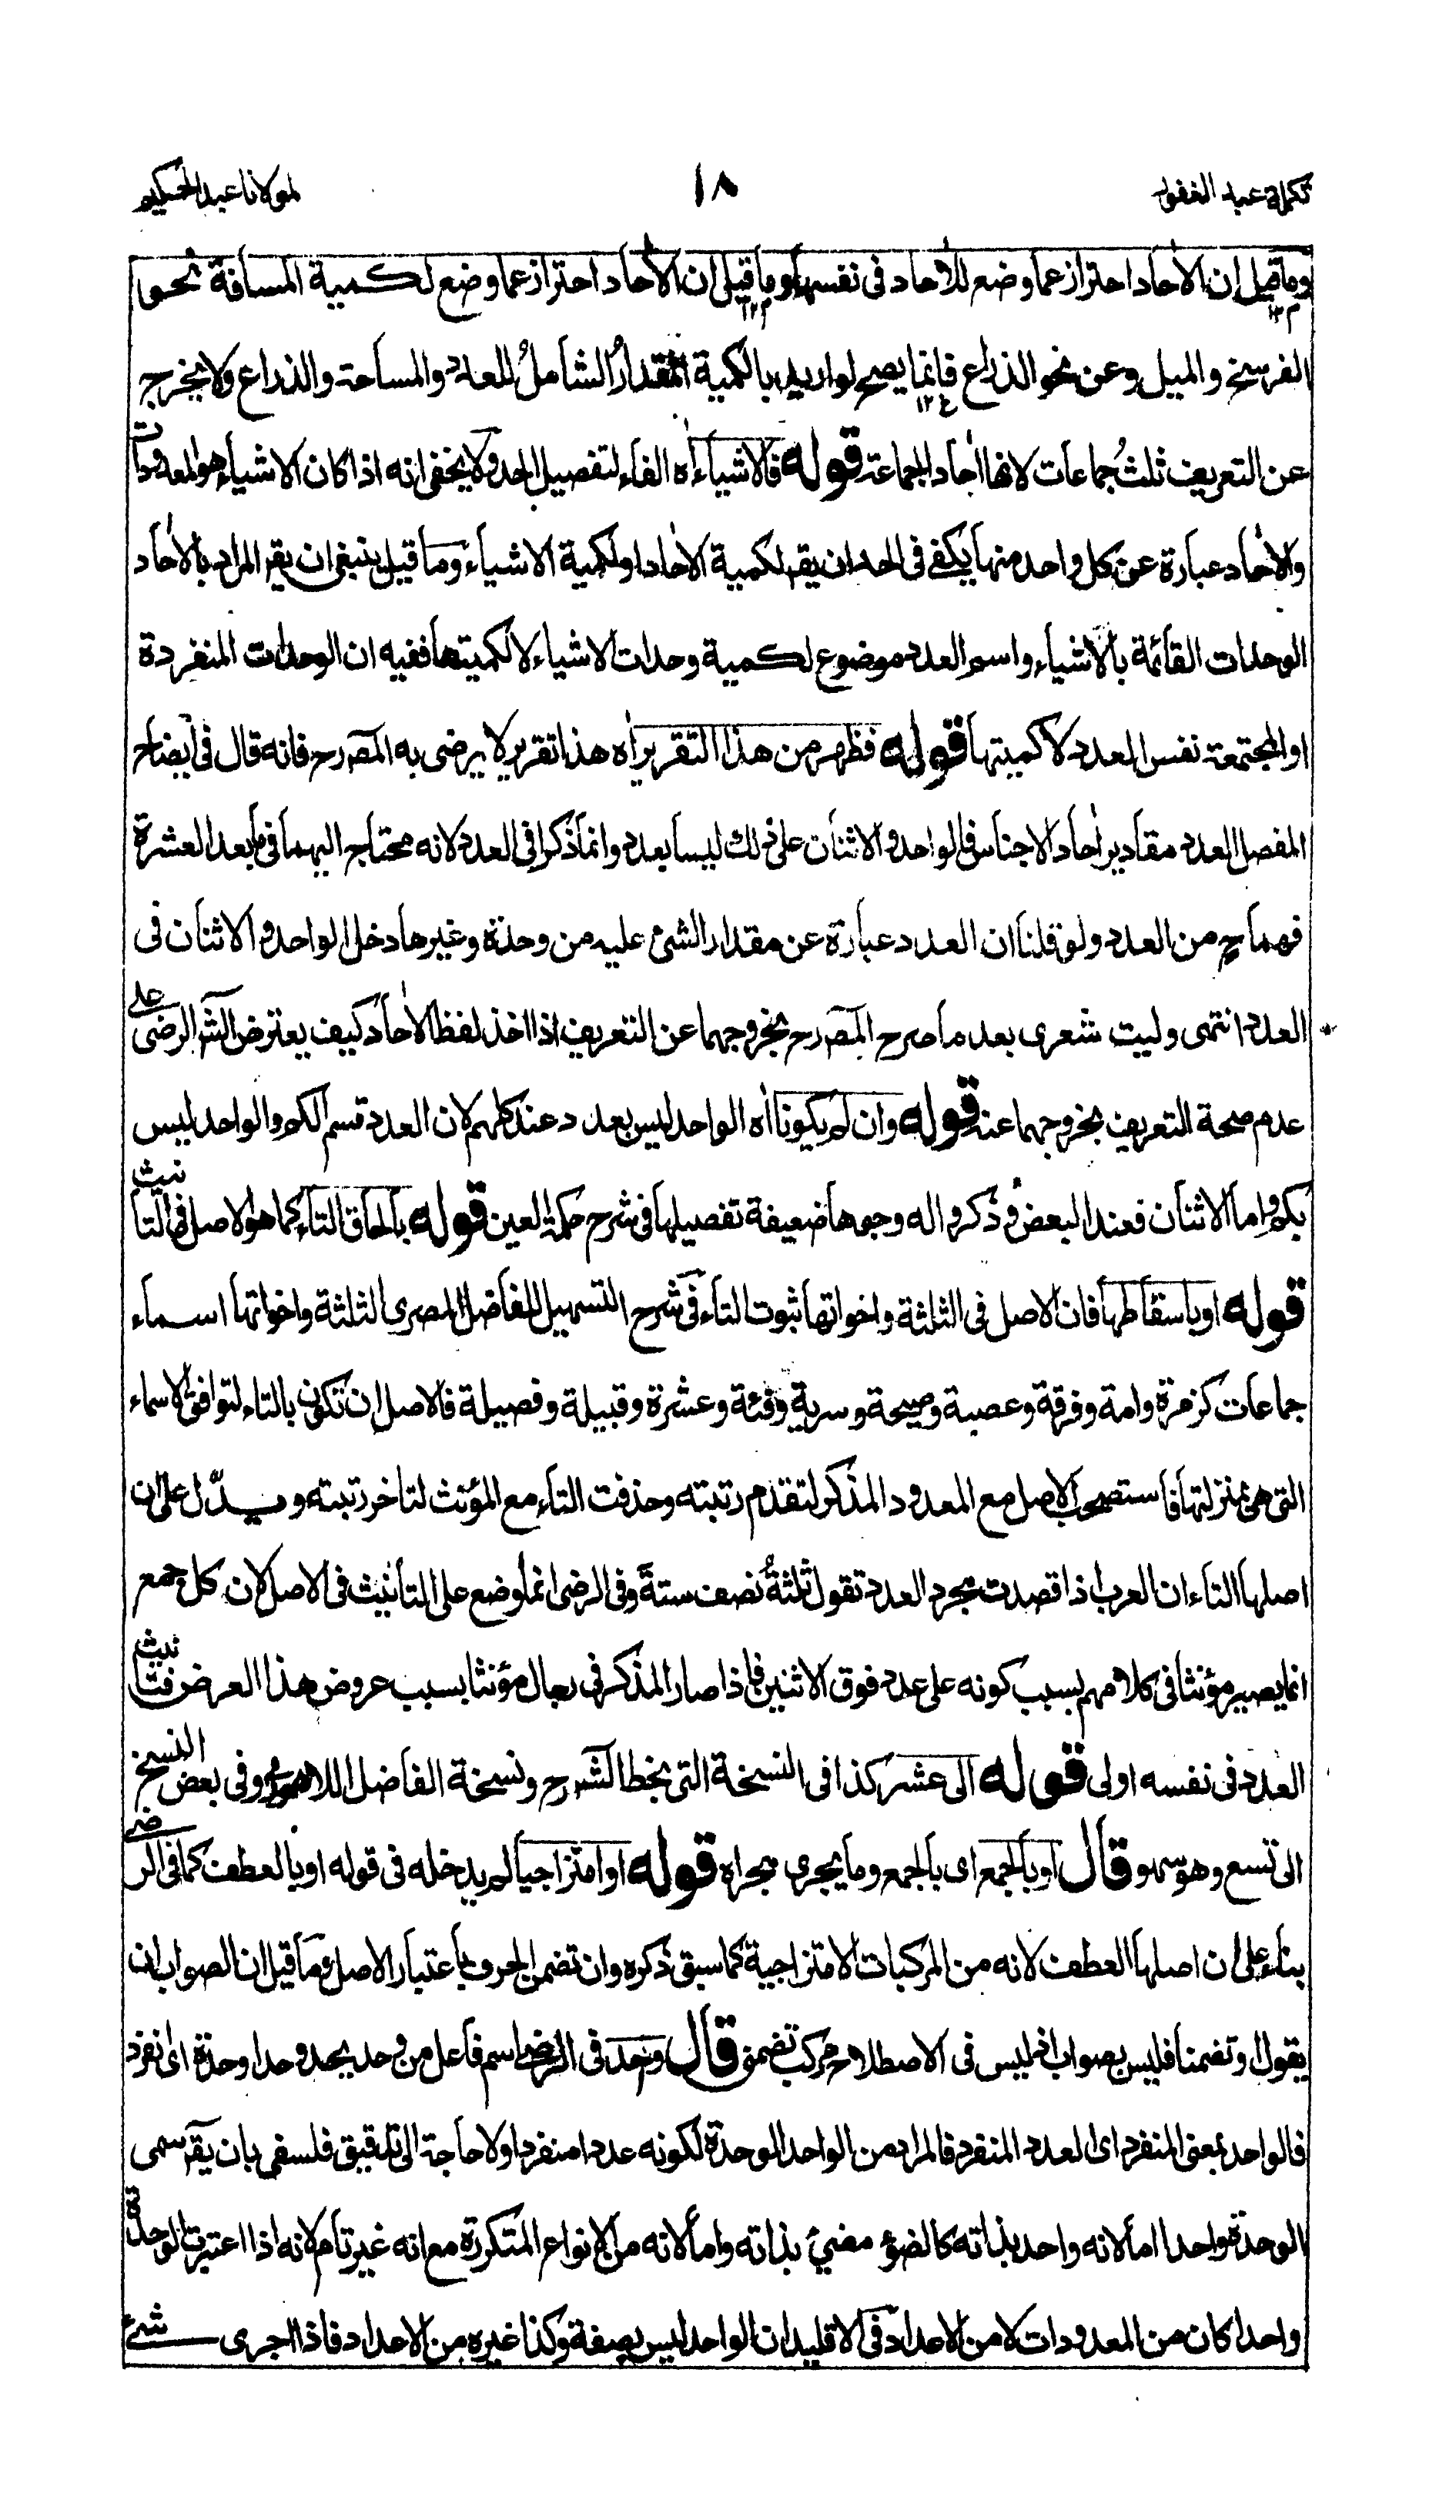 تكملة عبد الغفور
١٨
لمولانا عبد الحكيم
وما قيل ان الاحاد احتراز عما وضع للاحاد فى نفسها وما قيل ان الاحاد احتراز عما وضع لكمية المسافة نحو
الفرسخ والميل وعن نحو الذراع فانما يصح لو اريد بالكمية المقدارُ الشاملُ للعدد والمساحة والذراع ولا يخرج
عن التعريف ثلثُ جماعات لانها اٰحاد الجماعة قوله فالاشياء اه الفاء لتفصيل الحد ولا يخفى انه اذا كان الاشياء هو المعدودات
والاٰحاد عبارة عن كل واحد منها يكفى فى الحد ان يقٰ لكمية الاٰحاد او لكمية الاشياء وما قيل ينبغى ان يقٰ المراد بالاٰحاد
الوحدات القائمة بالاشياء واسم العدد موضوع لكمية وحدات الاشياء لا لكميتها ففيه ان الوحدات المنفردة
او المجتمعة نفس العدد لا كميتها قوله فظهر من هذا التقرير اه هذا تقرير لا يرضى به المصٓ رح فانه قال فى ايضاح
المفصل العدد مقادير اٰحاد الاجناس فالواحد والاثنان على ذلك ليسا بعدد وانما ذكرا فى العدد لانه محتاج اليهما فى ما بعد العشرة
فهما ح من العدد ولو قلنا ان العدد عبارة عن مقدار الشئ عليه من وحدة وغيرها دخل الواحد والاثنان فى
العدد انتهى وليت شعرى بعد ما صرح المصٓ رح بخروجهما عن التعريف اذا اخذ لفظ الاٰحاد كيف يعترض الشٓ الرضى على
عدم صحة التعريف بخروجهما عنه قوله وان لم يكونا اه الواحد ليس بعدد عند كلهم لان العدد قسم الكم والواحد ليس
بكم واما الاثنان فعند البعض وذكروا له وجوها ضعيفة تفصيلها فى شرح حكمة العين قوله بالحاق التاء كما هو الاصل فى التانيث
قوله او باسقاطها فان الاصل فى الثلثة واخواتها ثبوت التاء فى شرح التسهيل للفاضل المصرى الثلثة واخواتها اسماء
جماعات كزمرة وامة وفرقة وعصبة وصيحة وسرية وفئة وعشرة وقبيلة وفصيلة فالاصل ان تكون بالتاء لتوافق الاسماء
التى هى بمنزلتها فاستصحب الاصل مع المعدود المذكر لتقدم رتبته وحذفت التاء مع المؤنث لتاخر رتبته ويدل على ان
اصلها التاء ان العرب اذا قصدت مجرد العدد تقول ثلثةٌ نصف ستةَ وفى الرضى انما وضع على التانيث فى الاصل لان كل جمع
انما يصير مؤنثا فى كلامهم بسبب كونه على عدد فوق الاثنين فاذا صار المذكر فى رجال مؤنثا بسبب عروض هذا العرض فتانيث
العدد فى نفسه اولى قوله الى عشر كذا فى النسخة التى بخط الشٓ رح ونسخة الفاضل اللاهورى وفى بعض النسخ
الى تسع وهو سهو قال او بالجمع اى بالجمع وما يجرى مجراه قوله او امتزاجيا لم يدخله فى قوله او بالعطف كما فى الرضى
بناء على ان اصلها العطف لانه من المركبات الامتزاجية كما سبق ذكره وان تضمن الحرف باعتبار الاصل وما قيل ان الصواب ان
يقول او تضمنا فليس بصواب اذ ليس فى الاصطلاح مركب تضمنى قال واحد فى الرضى اسم فاعل من وحد يحد وحدا وحدة اى انفرد
فالواحد بمعنى المنفرد اى العدد المنفرد فالمراد من الواحد الوحدة لكونه عددا منفردا ولا حاجة الى تدقيق فلسفى بان يقٓ سمى
الوحدة واحدا اما لانه واحد بذاته كالضوء مضئ بذاته واما لانه من الانواع المتكررة مع انه غير تام لانه اذا اعتبرت الوحدة
واحدا كان من المعدودات لا من الاعداد فى الاقليد ان الواحد ليس بصفة وكذا غيره من الاعداد فاذا اجرى شئ